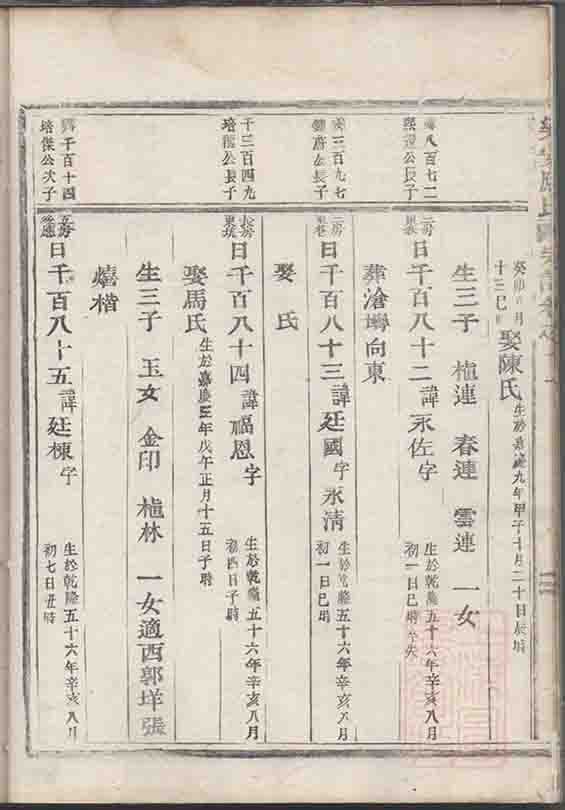 癸卯 月
十三巳 娶陳氏 生於嘉慶九年甲子十月二十日辰時
生三子 植連 春連 雲連 一女
八百七二
公長子
二房
日千百八十二 諱永佐 字 生於乾隆五十六年辛亥八月
初一日巳時
葬滄灣向東
三百九七
公長子
日千百八十三 諱廷國 字永清 生於乾隆五十六年辛亥八月
初一日巳時
娶 氏
千三百四九
培 公長子
日千百八十四 諱福恩 字 生於乾隆五十六年辛亥八月
初四日子時
娶馬氏 生於嘉慶三年戊午正月十五日子時
生三子 玉女 金印 植林 一女適西郭垟張
熺楷
千百十四
培傑公次子
日千百八十五 諱廷棟 字 生於乾隆五十六年辛亥八月
初七日丑時